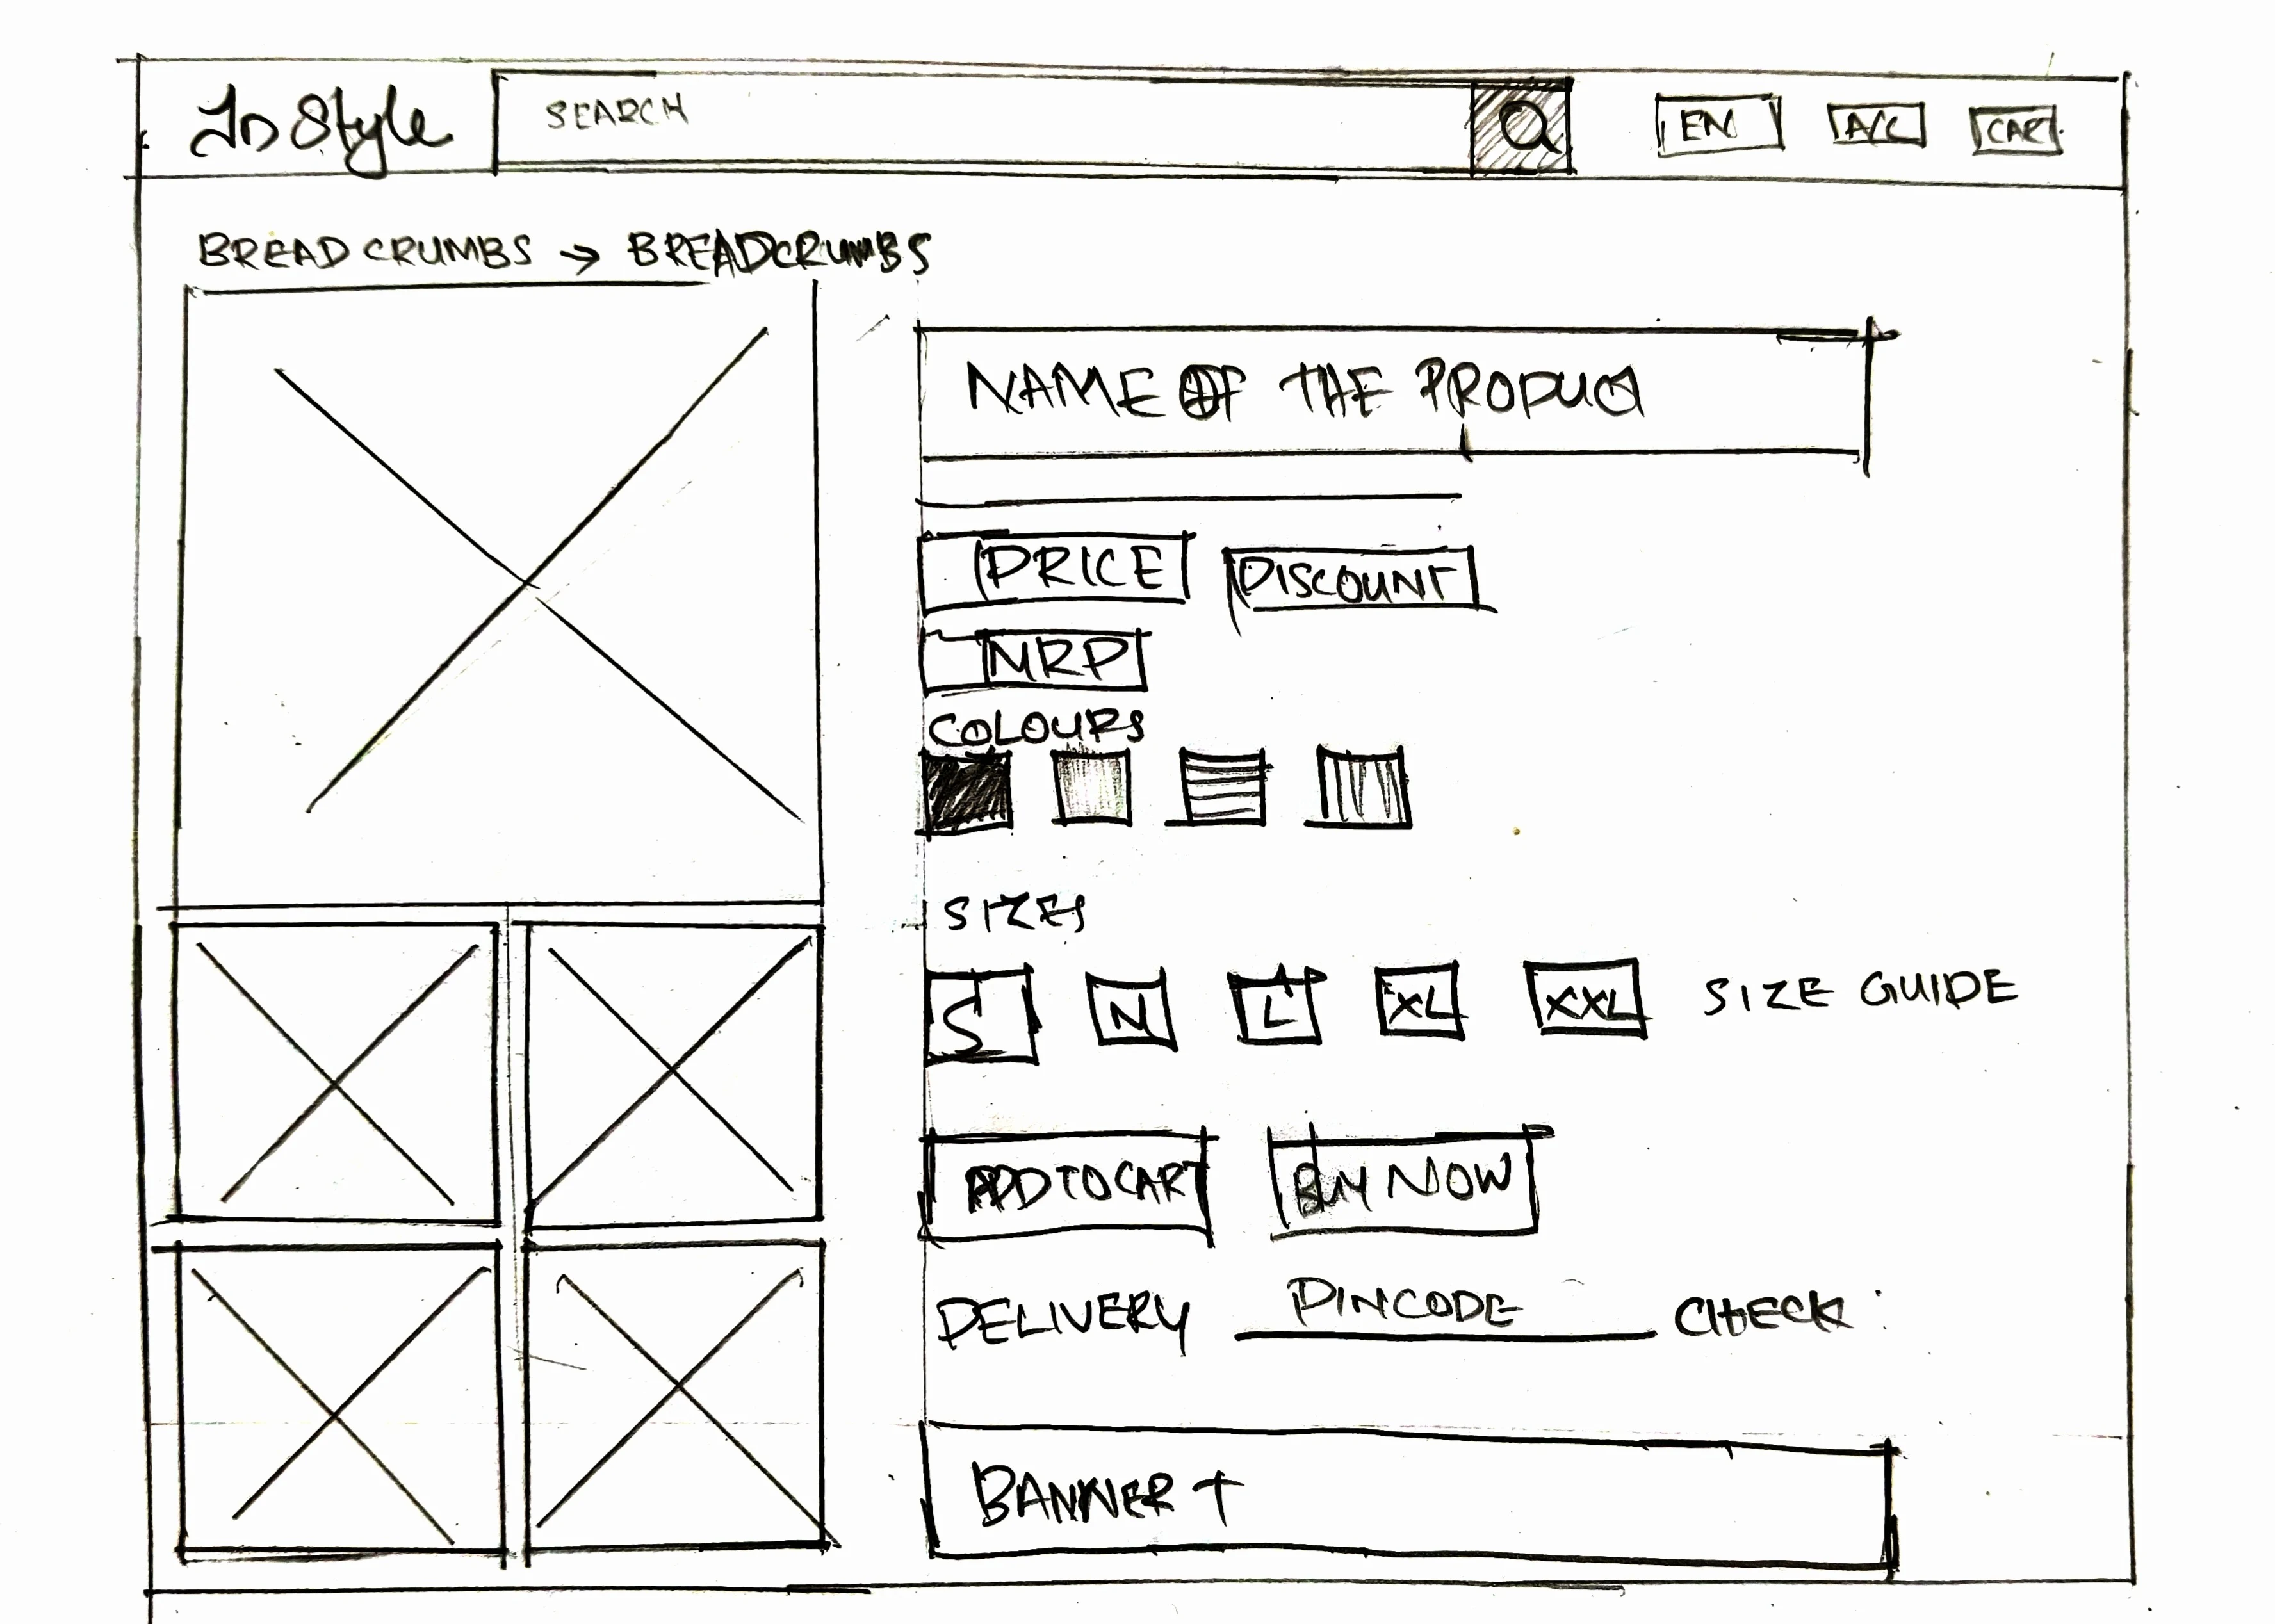 In Style SEARCH EN A/C CART
BREAD CRUMBS → BREADCRUMBS
NAME OF THE PRODUCT
PRICE DISCOUNT
MRP
COLOURS
SIZES
S M L XL XXL SIZE GUIDE
ADD TO CART BUY NOW
DELIVERY PINCODE CHECK :
BANNER +